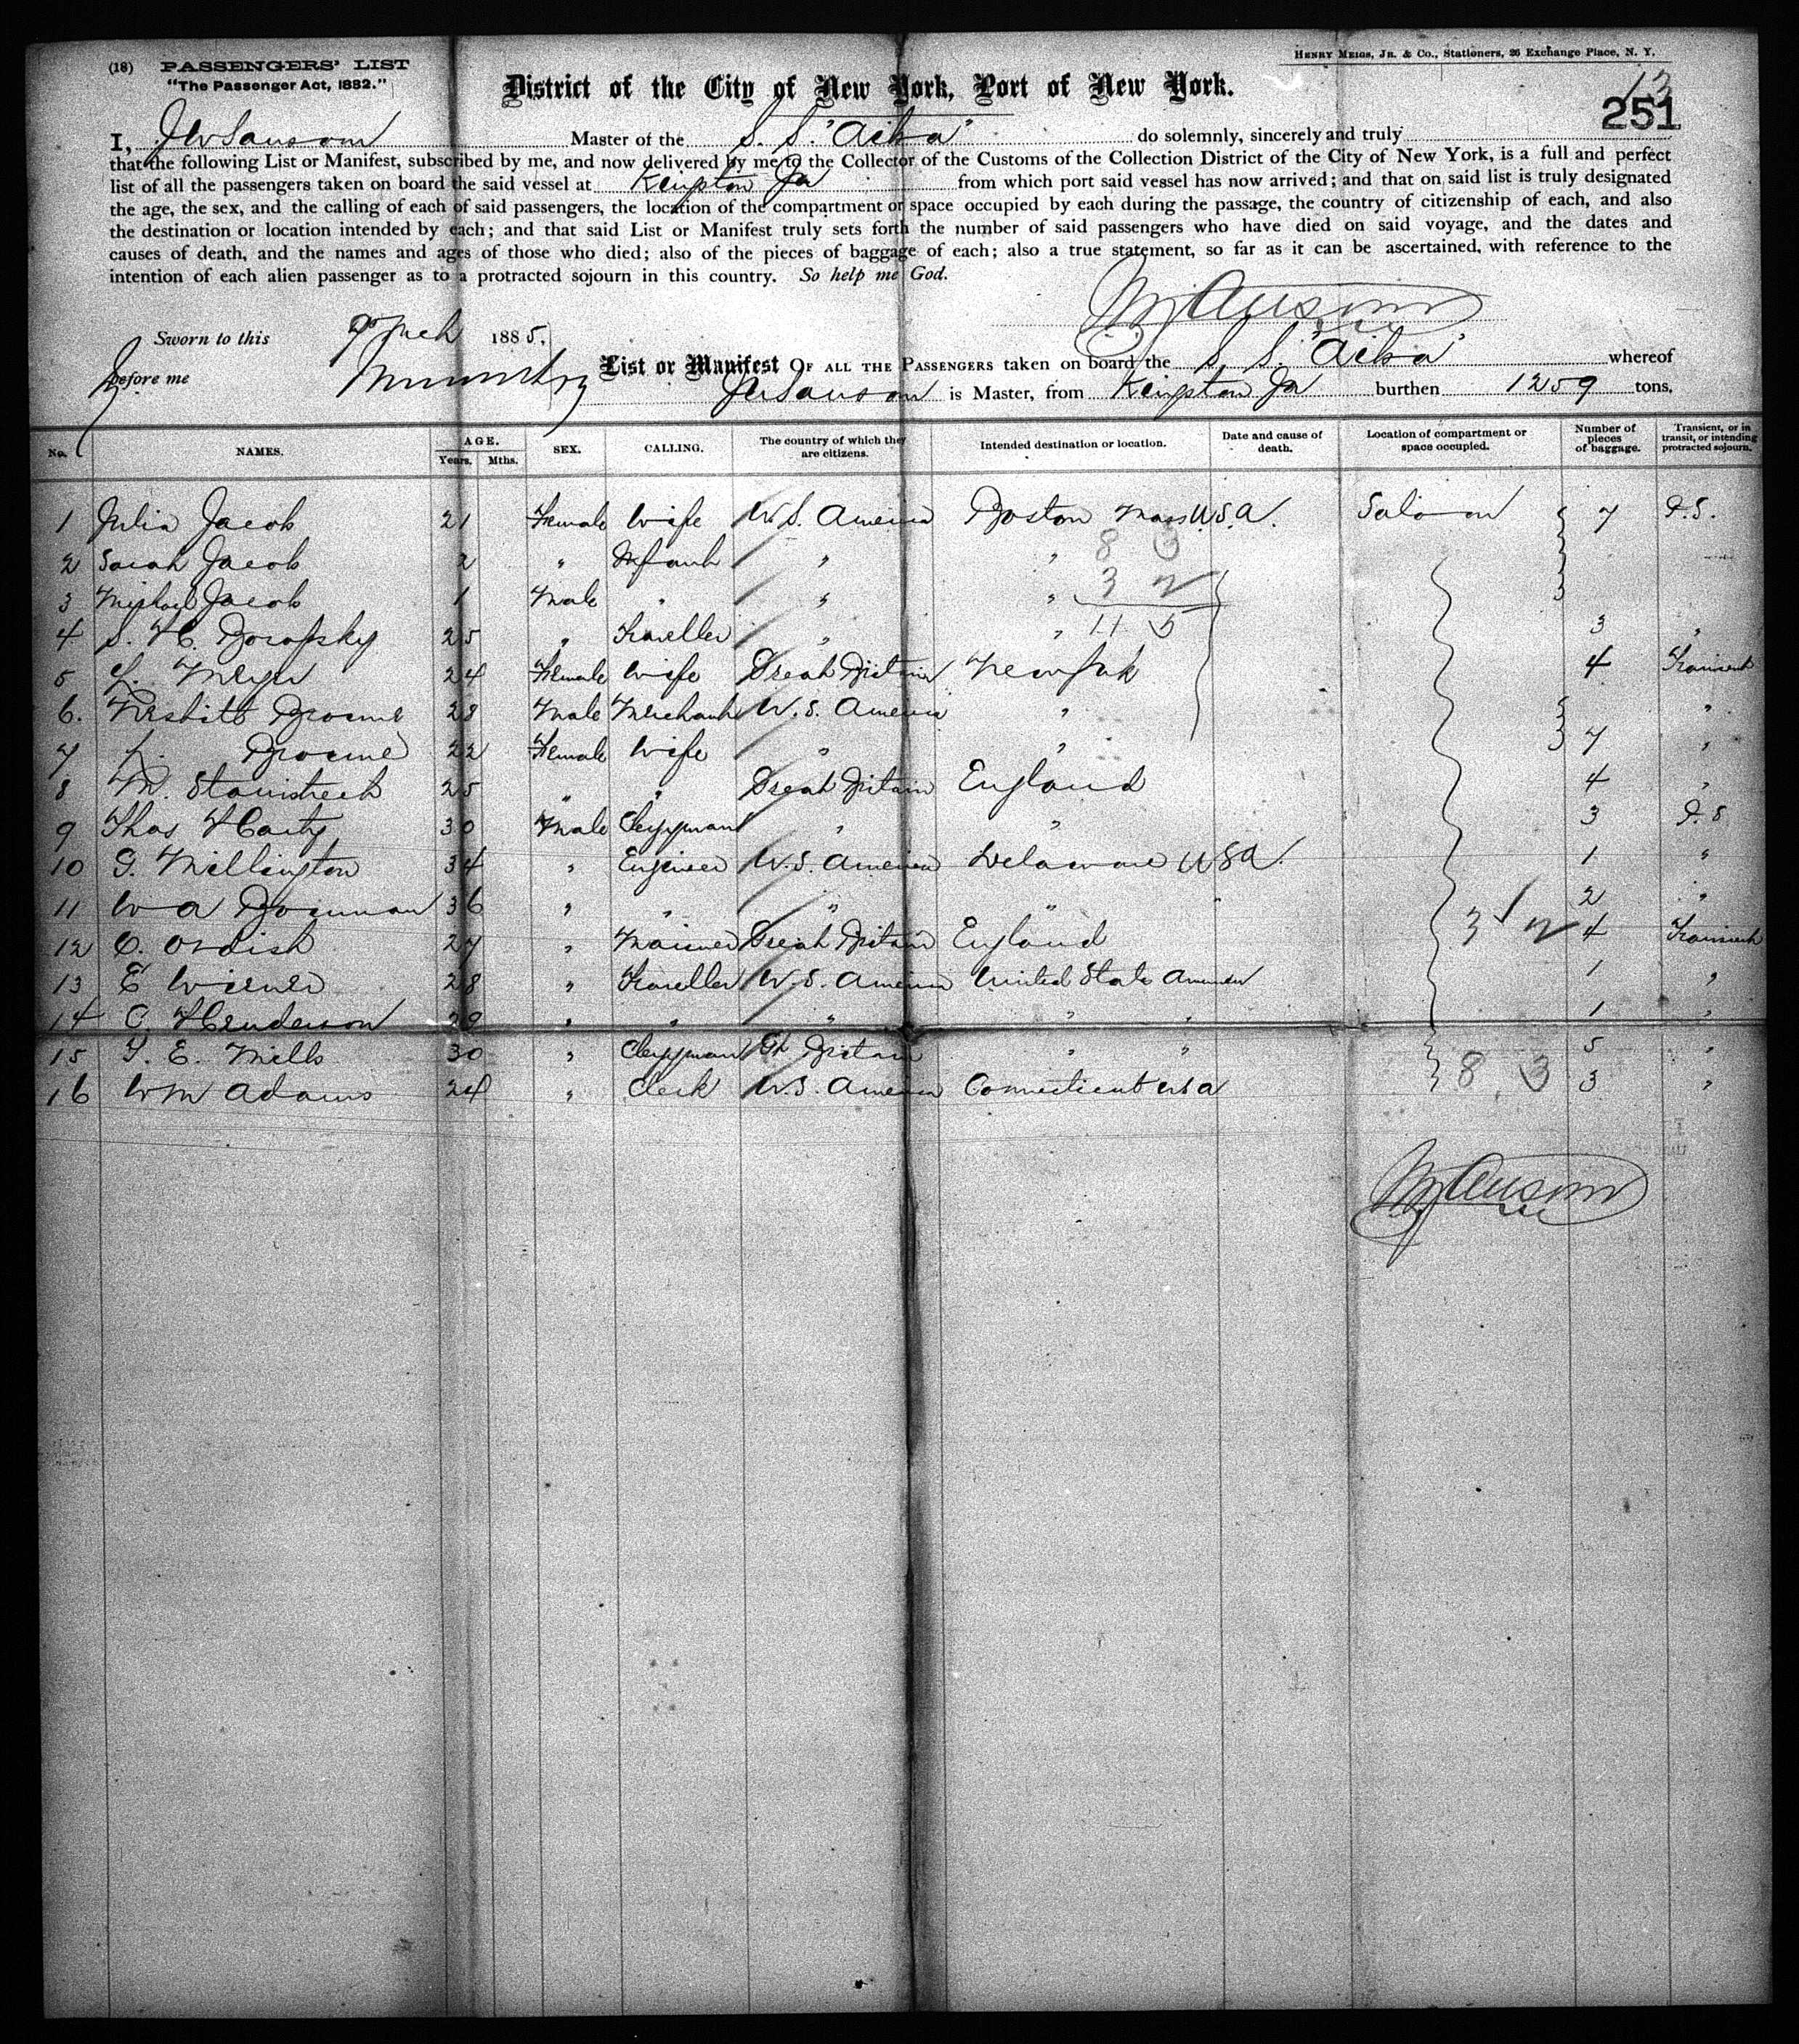 (18) PASSENGERS' LIST
"The Passenger Act, 1882."
HENRY MEIGS, JR. & CO., Stationers, 26 Exchange Place, N. Y.
District of the City of New York, Port of New York.
13
251
I, J W Sansom Master of the S. S. "Ailsa" do solemnly, sincerely and truly
that the following List or Manifest, subscribed by me, and now delivered by me to the Collector of the Customs of the Collection District of the City of New York, is a full and perfect
list of all the passengers taken on board the said vessel at Kingston Ja from which port said vessel has now arrived; and that on said list is truly designated
the age, the sex, and the calling of each of said passengers, the location of the compartment or space occupied by each during the passage, the country of citizenship of each, and also
the destination or location intended by each; and that said List or Manifest truly sets forth the number of said passengers who have died on said voyage, and the dates and
causes of death, and the names and ages of those who died; also of the pieces of baggage of each; also a true statement, so far as it can be ascertained, with reference to the
intention of each alien passenger as to a protracted sojourn in this country. So help me God.
JWSansom
Sworn to this 9 Mch 1885.
before me
List or Manifest OF ALL THE PASSENGERS taken on board the S. S. "Ailsa" whereof
JWSansom is Master, from Kingston Ja burthen 1259 tons.
No. NAMES. AGE. Years. Mths. SEX. CALLING. The country of which they are citizens. Intended destination or location. Date and cause of death. Location of compartment or space occupied. Number of pieces of baggage. Transient, or in transit, or intending protracted sojourn.
1 Julia Jacob 21 Female Wife U.S. America Boston Mass U.S.A. Saloon 7 P.S.
2 Sarah Jacob 2 " Infant " "
8 3
3 Michael Jacob 1 Male " " "
3 2
4 S. H. Borofsky 25 " Traveller " " 3 "
11 5
5 L. Meyer 24 Female Wife Great Britain New York 4 Transient
6. Nesbitt Browne 28 Male Merchant U.S. America " "
7 L. Browne 22 Female Wife " " 7 "
8 M. Stanistreet 25 " " Great Britain England 4 "
9 Thos Harty 30 Male Clergyman " " 3 P.S
10 G. Millington 34 " Engineer U.S. America Delaware USA. 1 "
11 W A Bowman 36 " " " " " 2 "
12 C. Ordish 27 " Mariner Great Britain England 3 2 4 Transient
13 E Wiener 28 " Traveller U.S. America United States America 1 "
14 C. Henderson 29 " " " " " 1 "
15 T. E. Mills 30 " Clergyman Gt Britain " " 5 "
16 Wm Adams 24 " Clerk U.S. America Connecticut USA 8 3 3 "
JWSansom